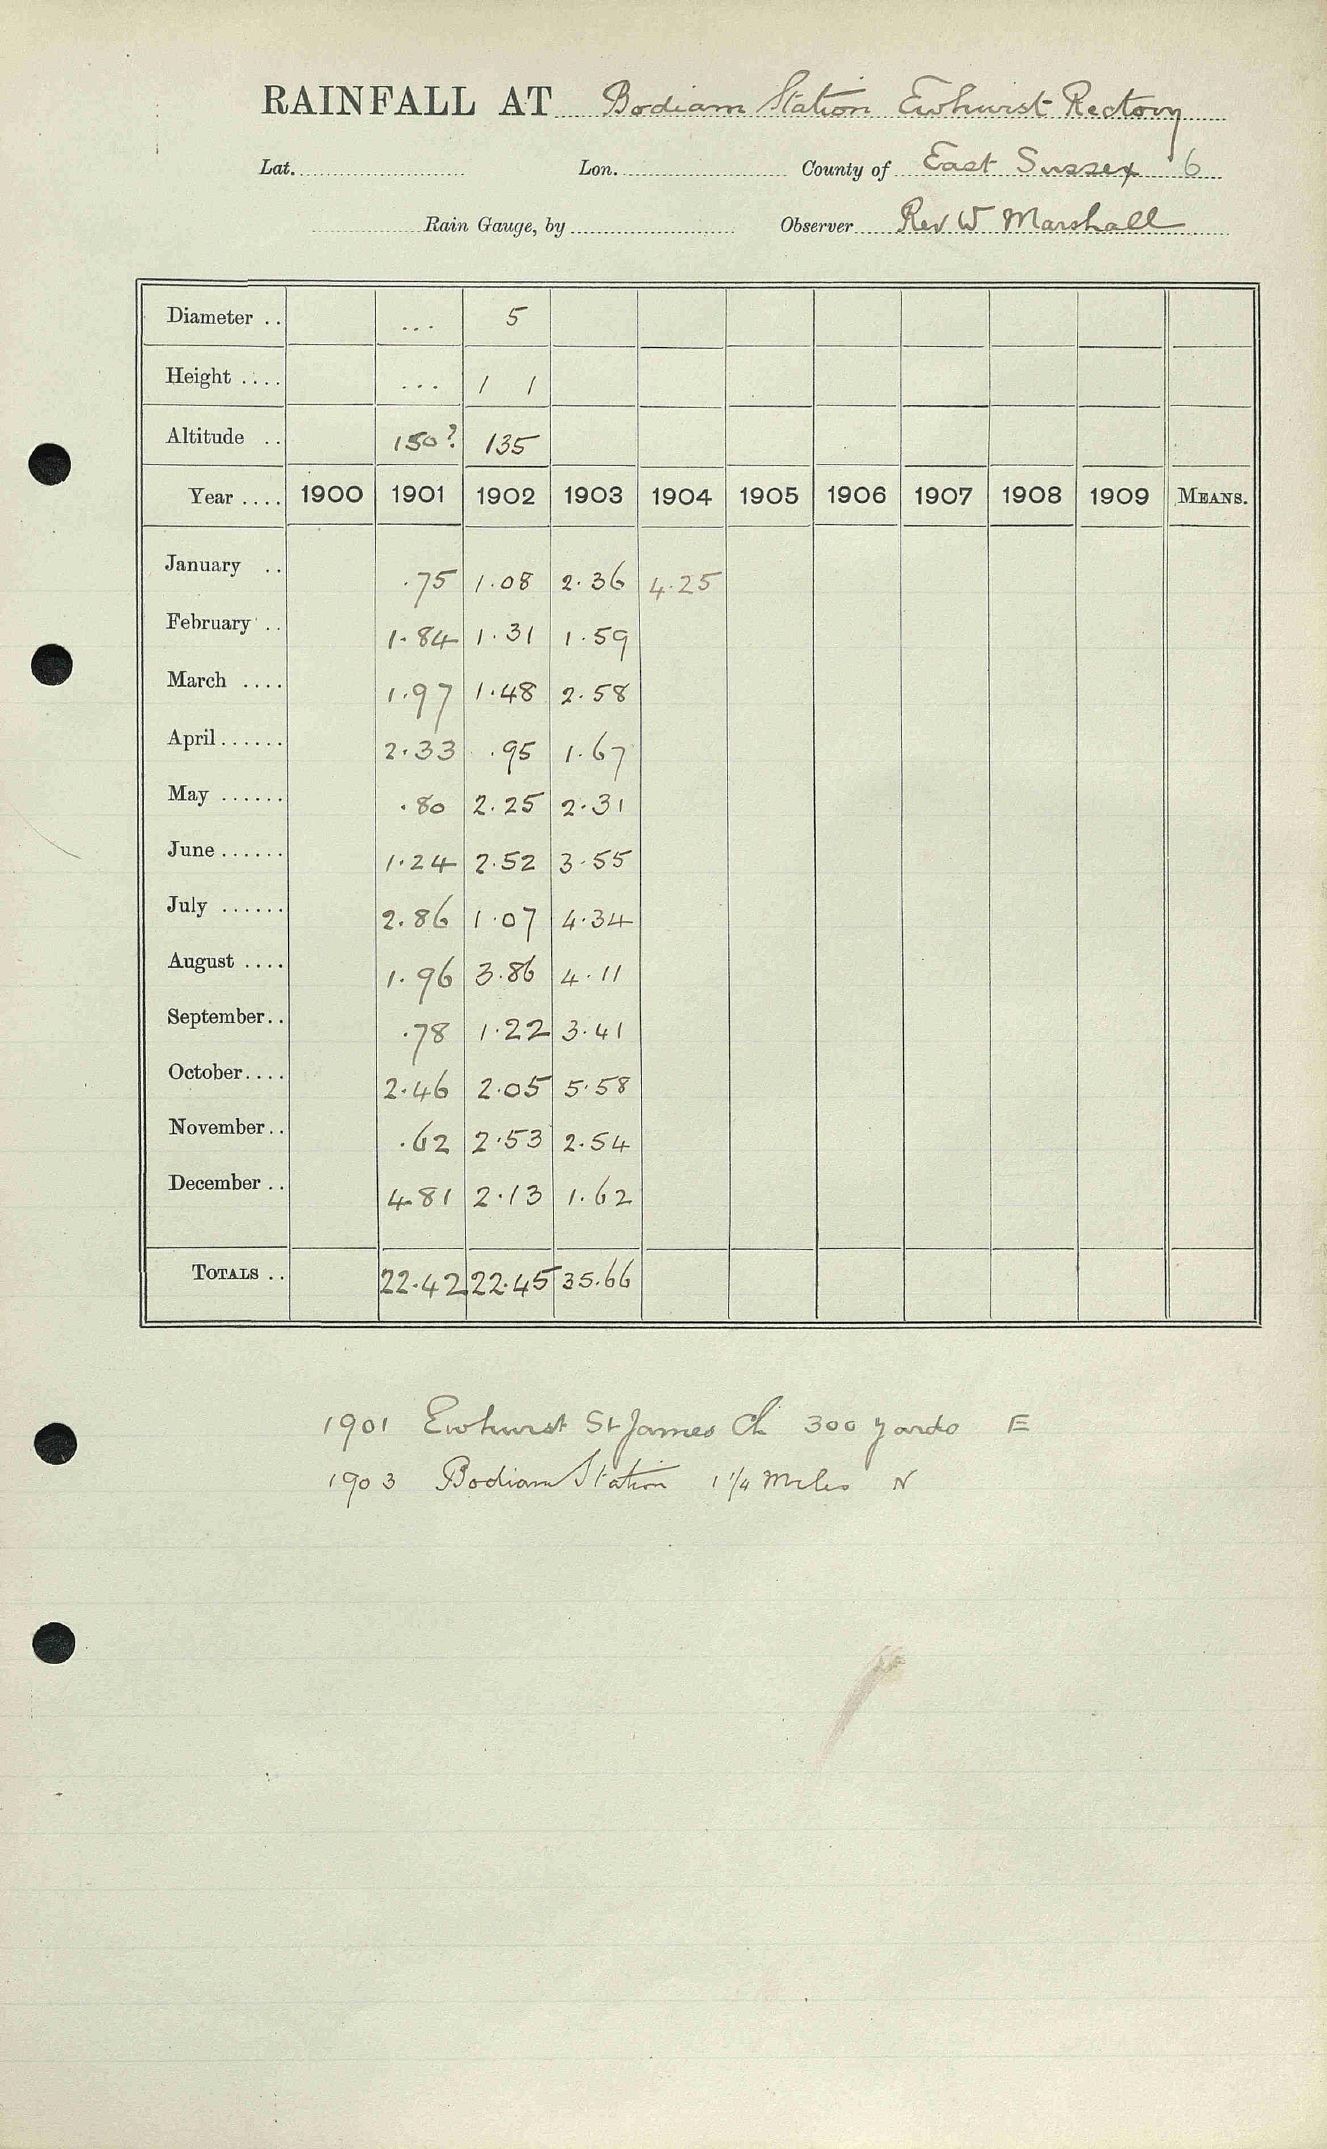 RAINFALL AT Bodiam Station Ewhurst Rectory
Lat. Lon. County of East Sussex 6
Rain Gauge, by Observer Rev W Marshall
Diameter .. ... 5
Height .... ... 1 1
Altitude .. 150? 135
Year .... 1900 1901 1902 1903 1904 1905 1906 1907 1908 1909 MEANS.
January .. .75 1.08 2.36 4.25
February .. 1.84 1.31 1.59
March .... 1.97 1.48 2.58
April...... 2.33 .95 1.67
May ...... .80 2.25 2.31
June ...... 1.24 2.52 3.55
July ...... 2.86 1.07 4.34
August .... 1.96 3.86 4.11
September.. .78 1.22 3.41
October.... 2.46 2.05 5.58
November.. .62 2.53 2.54
December .. 4.81 2.13 1.62
TOTALS .. 22.42 22.45 35.66
1901 Ewhurst St James Ch 300 yards E
1903 Bodiam Station 1 1/4 Miles N